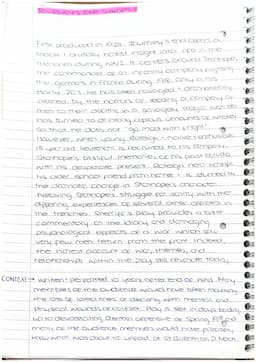 First produced in 1928, Journey's End offers a
honest insight into life in the
trenches during WW1. It centres around Stanhope,
the commander of an infantry company fighting
the Germans in France during 1918. Only in his
early 20's, he has been ravaged +
altered by the horrors of leading a company of
men to their deaths in a savagely tragic war. He
has turned to drinking copious amounts of whisky
so that he does not "go mad with fright".
However, when young Raleigh, a naive + enthusiastic
18 year old lieutenant is recruited to his company,
Stanhope's blissful memories of his past collide
with his desperate present. Raleigh
his older school friend from home + is stunned by
the dramatic change in Stanhope's character.
Weaving Stanhope's struggle for sanity with the
differing experiences of several other officers in
the trenches, Sherriff's play provides a bitter
commentary on the and damaging
psychological effects of a war which saw
very few men return from the front. Indeed
the honest account of war, themes, and
relationships within the play still resonate today.
CONTEXT → Written + performed 10 years after end of WW1. Many
members of the audience would have been mourning
the loss of loved ones or dealing with mental and
physical wounds of combat. Play is set in days leading
up to devastating German offensive of Spring 1918 and
many of the audience members would have precisely
known what was about to unfold at St Quentin on 21 March